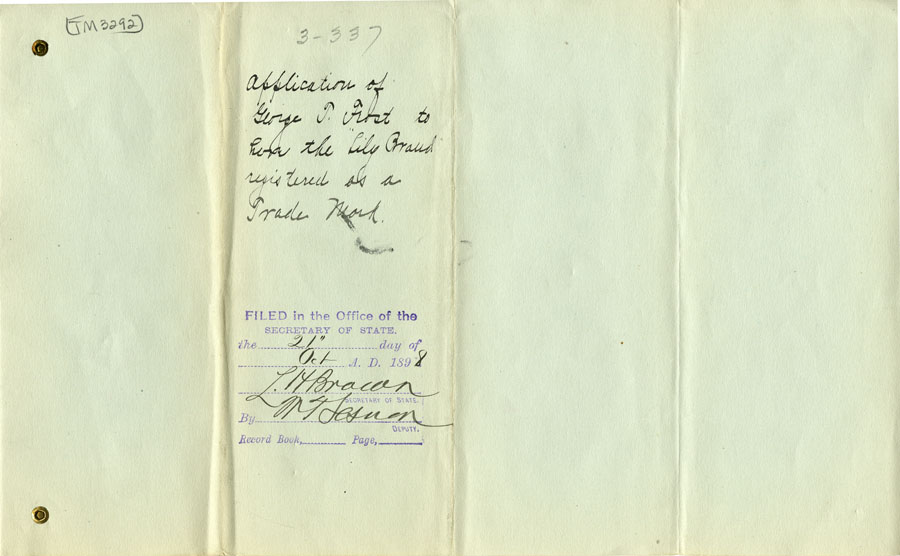 [TM3292]
3-337
Application of
George T. Frost to
have the "Lily Brand"
registered as a
Trade Mark.
FILED in the Office of the
SECRETARY OF STATE,
the 21" day of
Oct A. D. 1898
L. H. Brown
SECRETARY OF STATE.
By
DEPUTY.
Record Book, Page,